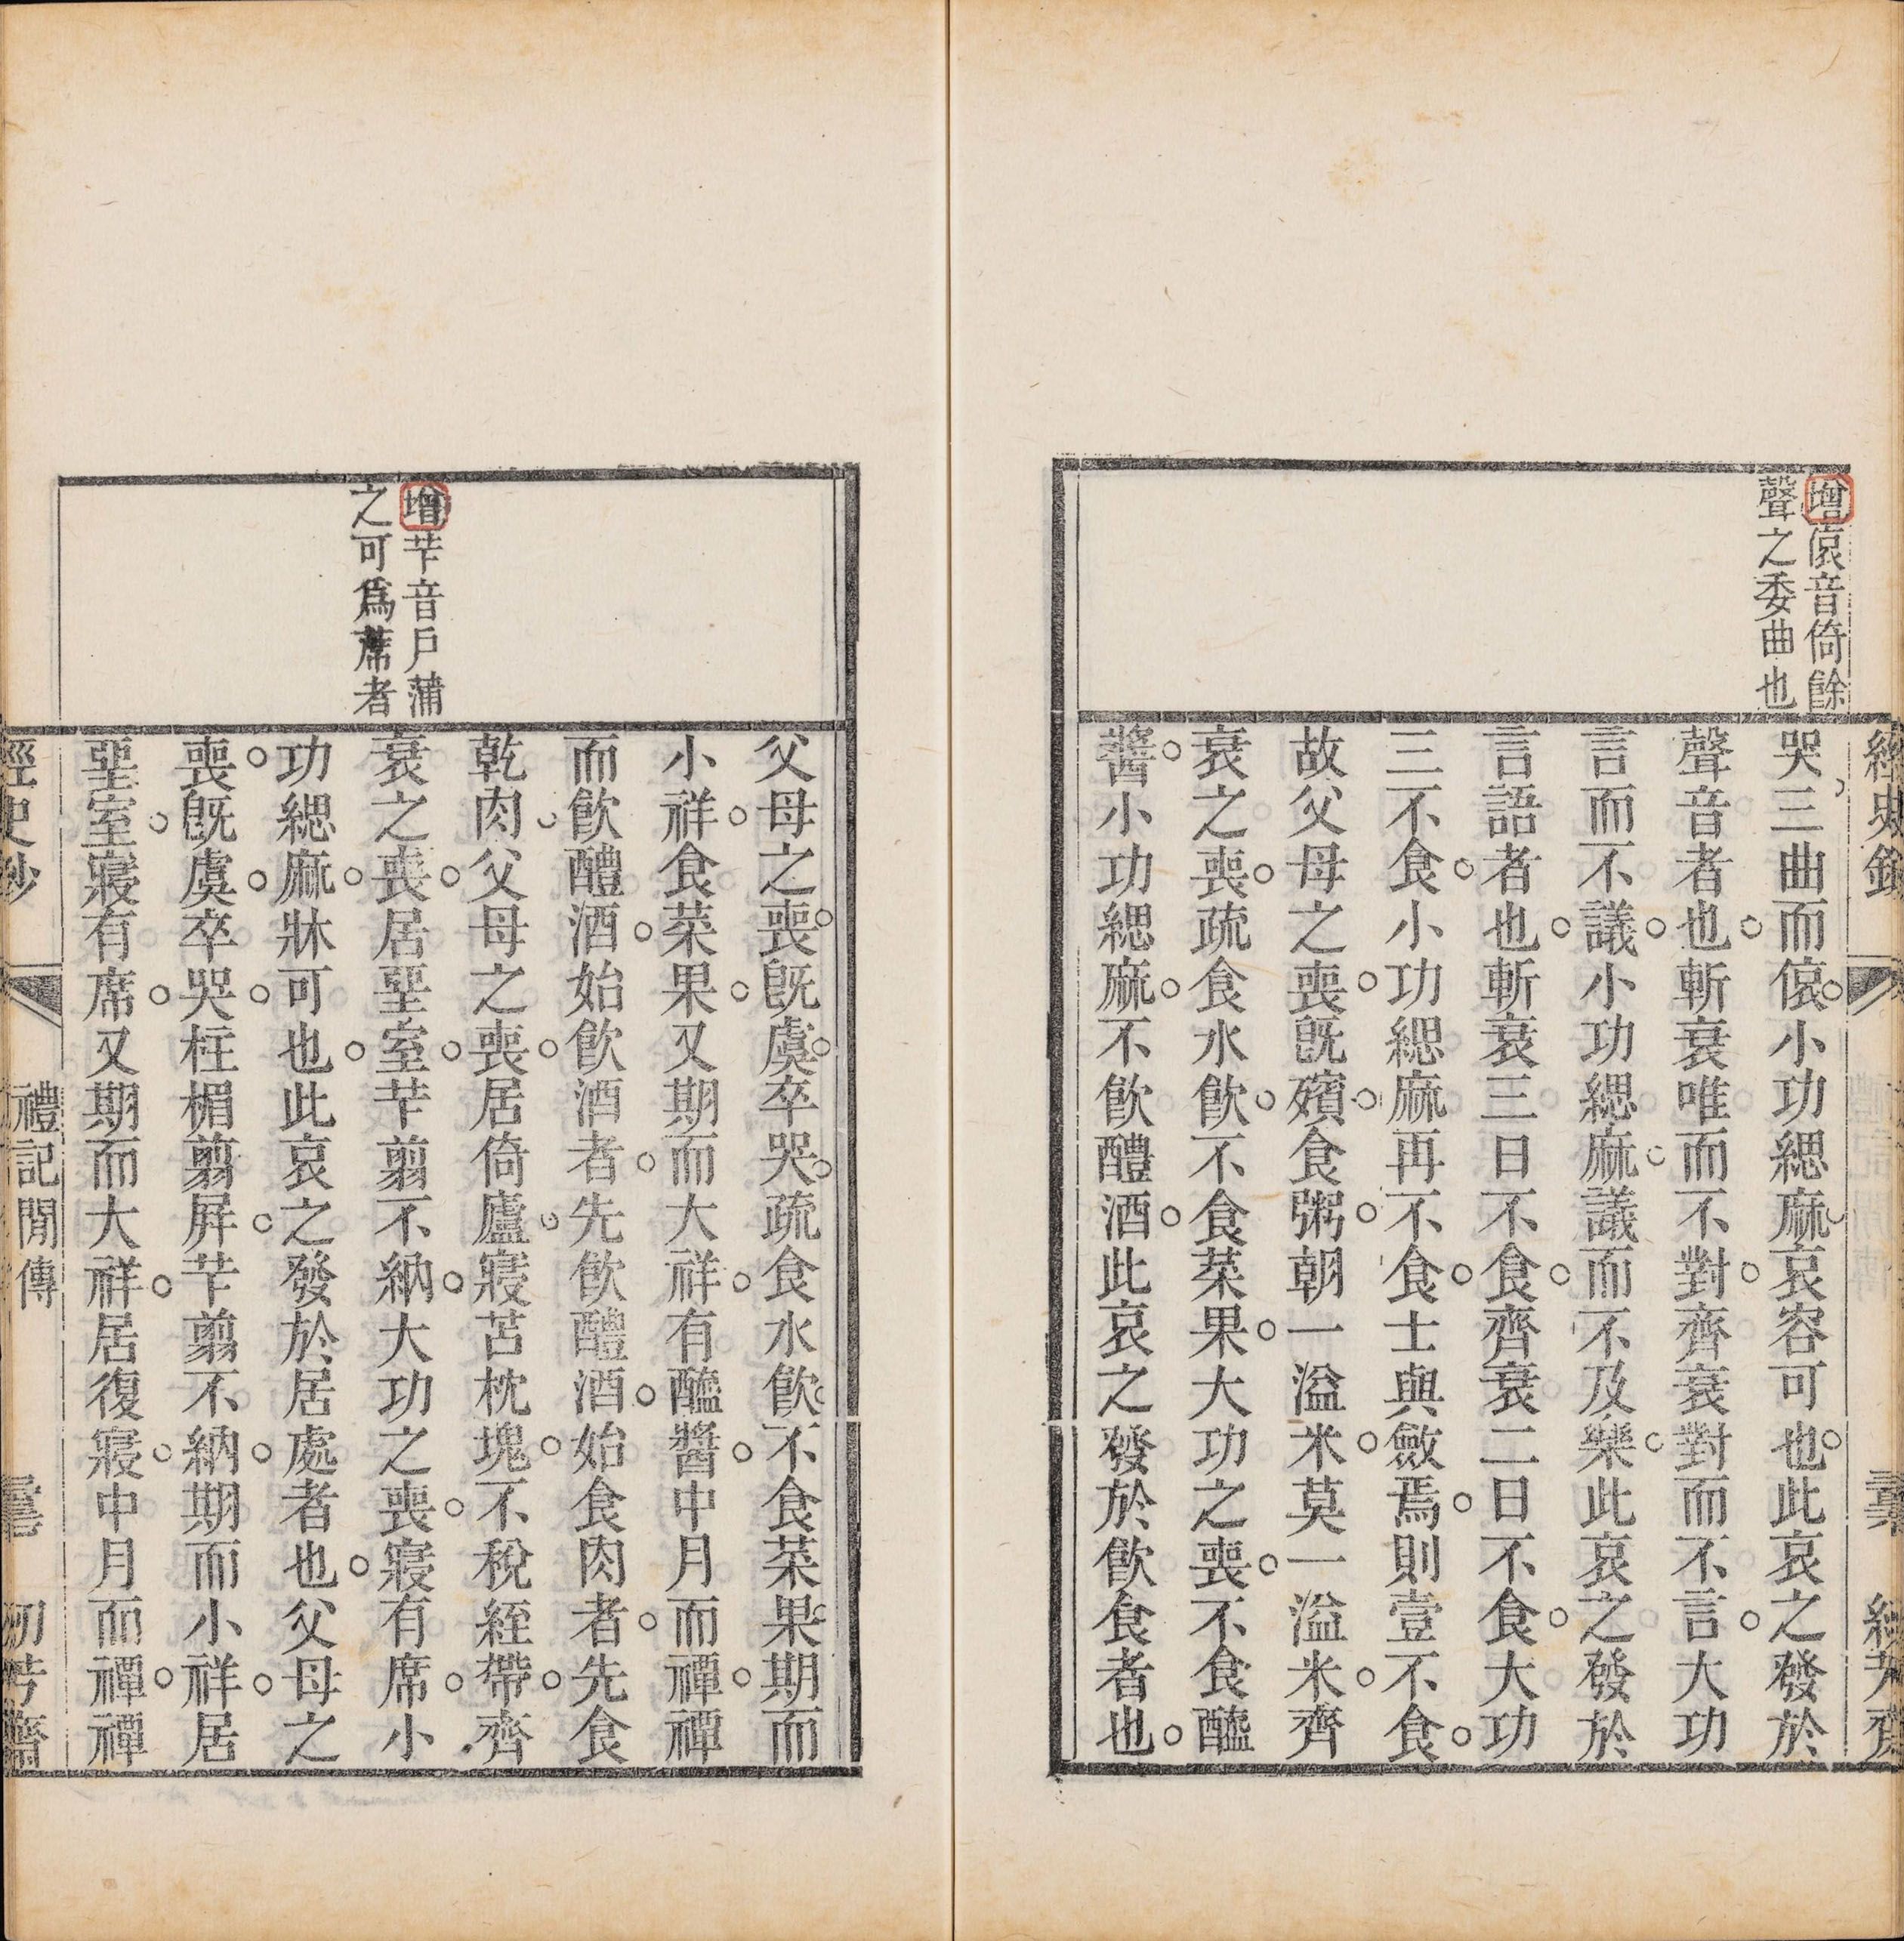 增偯音倚餘
聲之委曲也
哭三曲而偯小功緦麻哀容可也此哀之發於
聲音者也斬衰唯而不對齊衰對而不言大功
言而不議小功緦麻議而不及樂此哀之發於
言語者也斬衰三日不食齊衰二日不食大功
三不食小功緦麻再不食士與斂焉則壹不食
故父母之喪既殯食粥朝一溢米莫一溢米齊
衰之喪疏食水飲不食菜果大功之喪不食醯
醬小功緦麻不飲醴酒此哀之發於飲食者也
增芐音戶蒲
之可爲蓆者
父母之喪既虞卒哭疏食水飲不食菜果期而
小祥食菜果又期而大祥有醯醬中月而禫禫
而飲醴酒始飲酒者先飲醴酒始食肉者先食
乾肉父母之喪居倚廬寢苫枕塊不稅絰帶齊
衰之喪居堊室芐翦不納大功之喪寢有席小
功緦麻牀可也此哀之發於居處者也父母之
喪既虞卒哭柱楣翦屏芐翦不納期而小祥居
堊室寢有席又期而大祥居復寢中月而禫禫
經史鈔
禮記閒傳